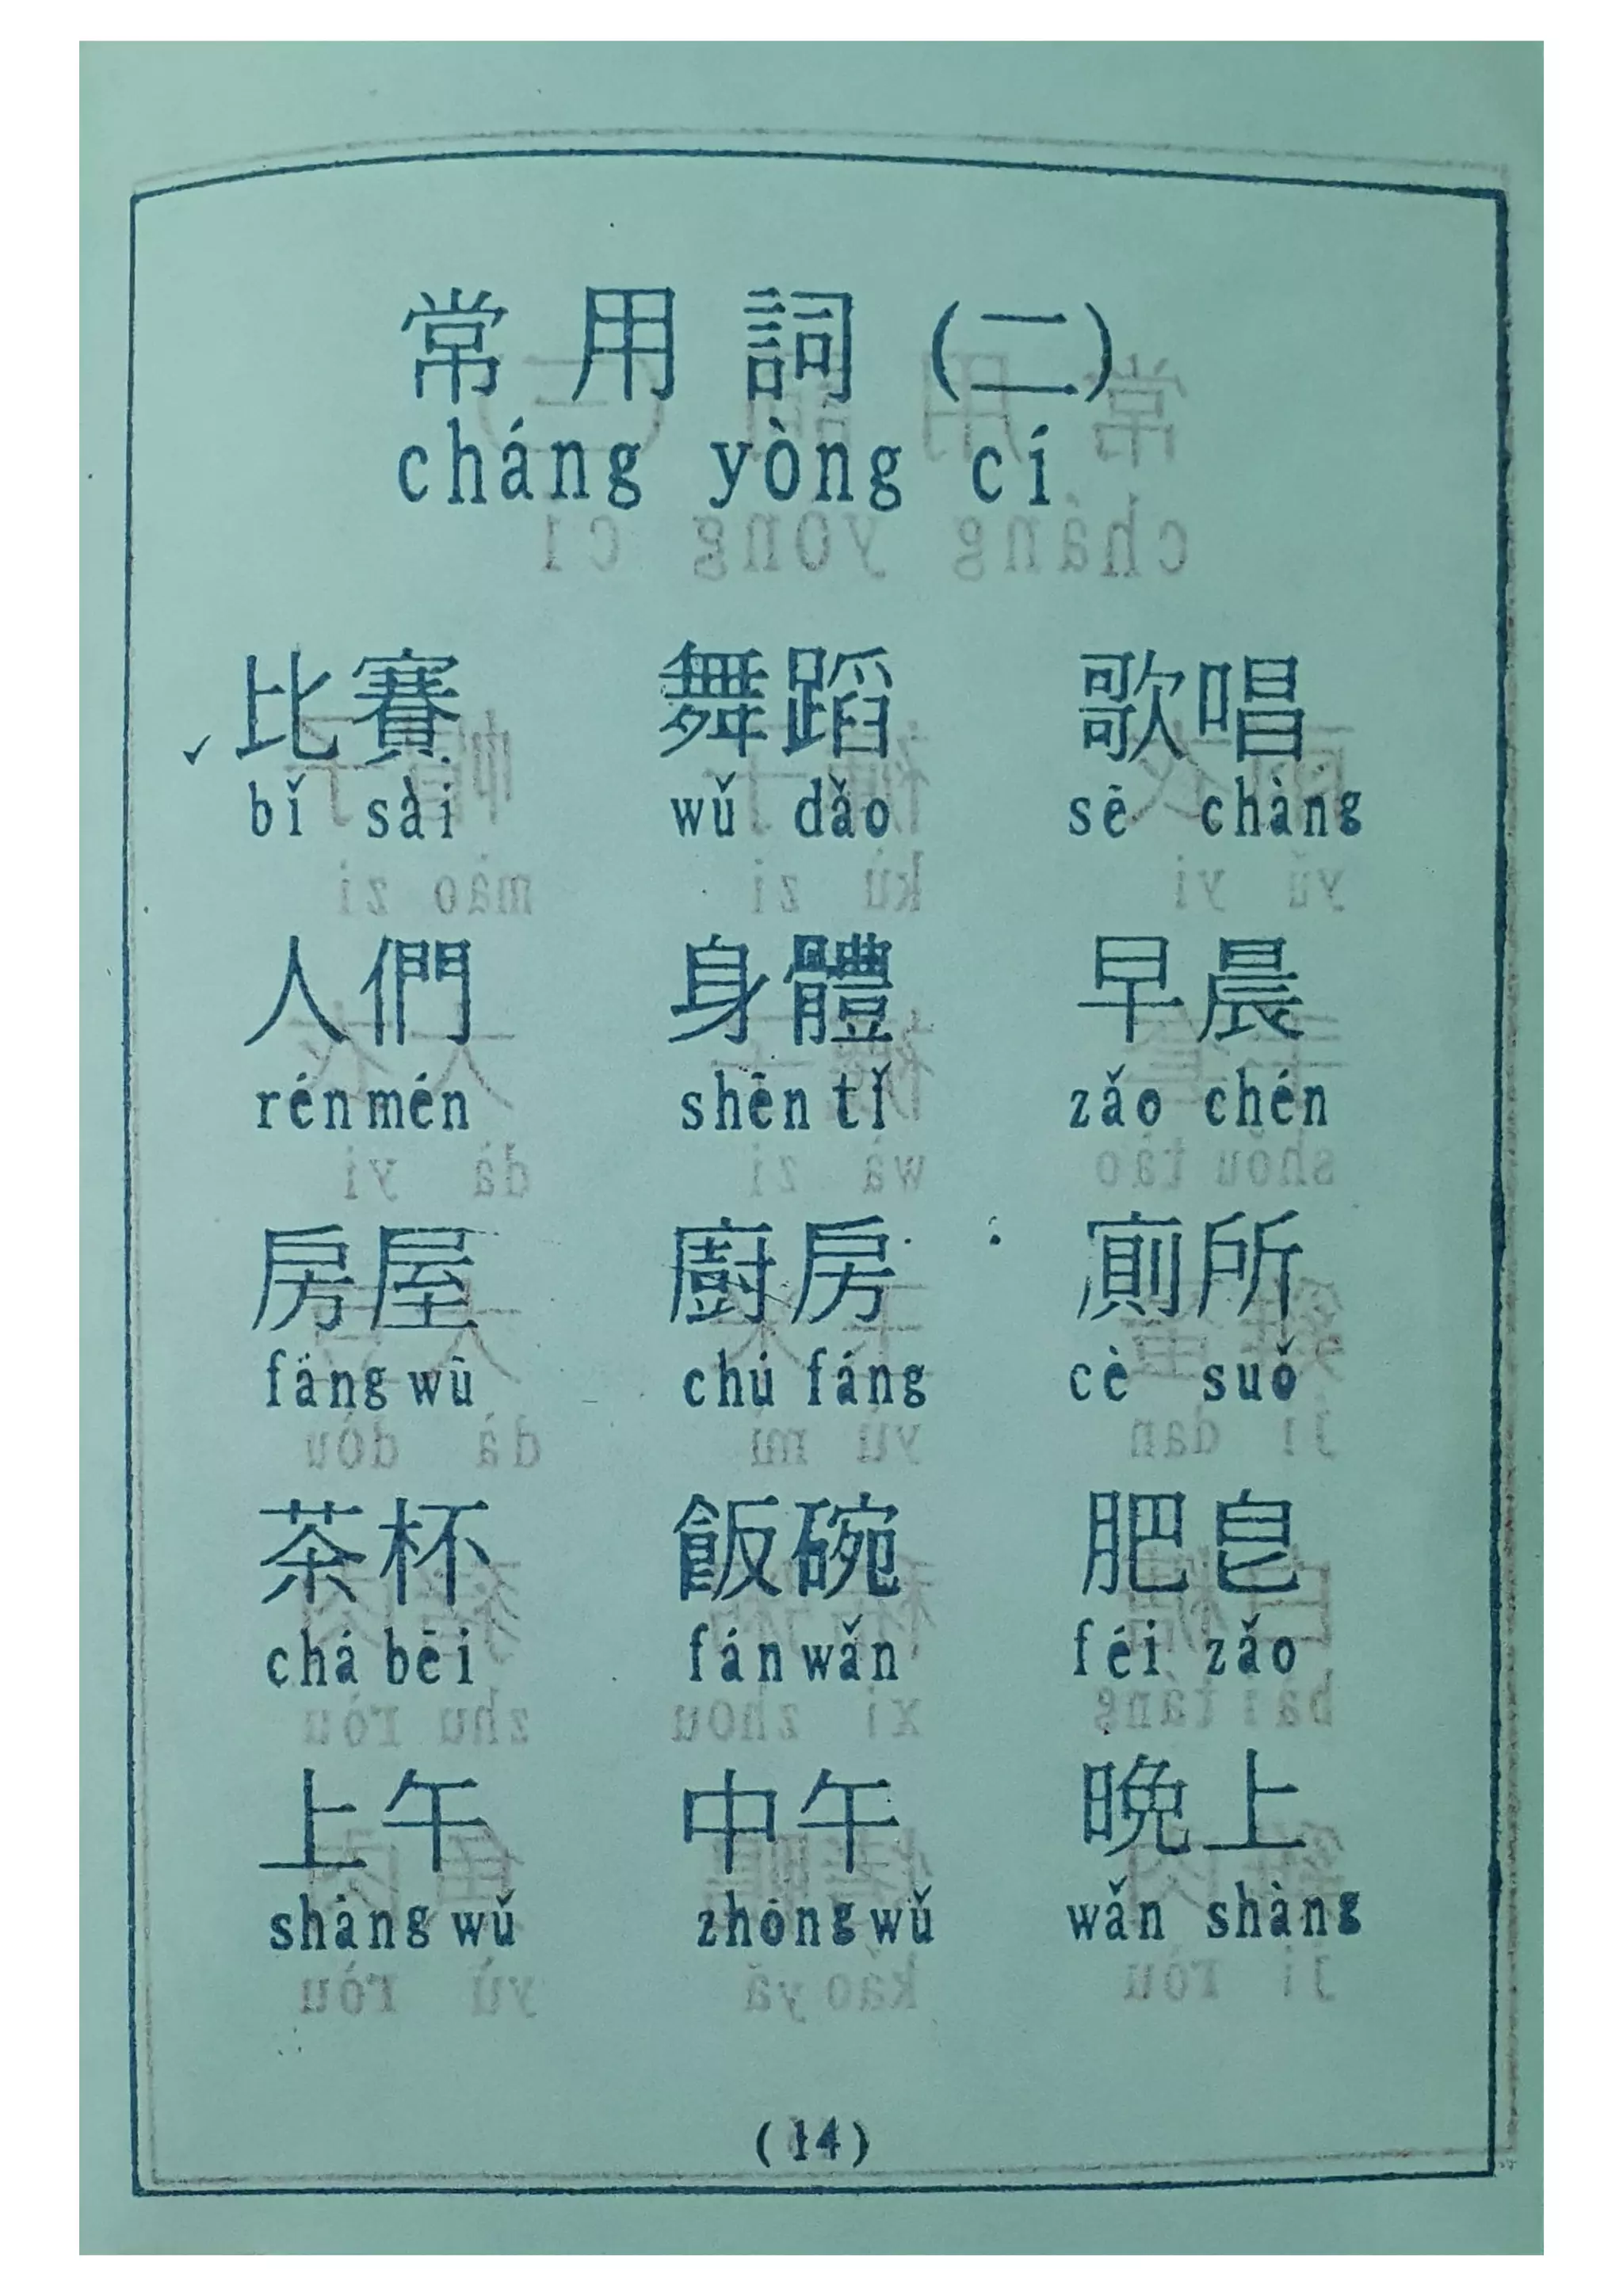 常用詞(二)
cháng yòng cí
比賽 舞蹈 歌唱
bǐ sài wǔ dǎo sē chàng
人們 身體 早晨
rén mén shēn tǐ zǎo chén
房屋 廚房 廁所
fáng wū chú fáng cè suǒ
茶杯 飯碗 肥皂
chá bēi fán wǎn féi zǎo
上午 中午 晚上
shàng wǔ zhōng wǔ wǎn shàng
(14)